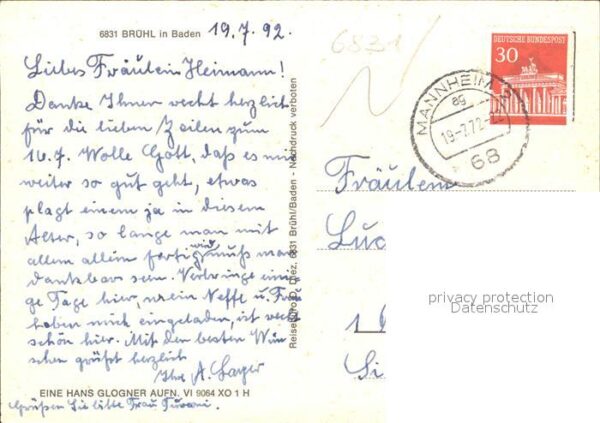 6831 BRÜHL in Baden
19.7.92.
6831
Liebes Fräulein Heimann!
Danke Ihnen recht herzlich
für die lieben Zeilen zum
16.7. Wolle Gott, daß es mir
weiter so gut geht, etwas
plagt einem ja in diesem
Alter, so lange man mit
allem allein fertig wird muß man
dankbar sein. Verbringe eini-
ge Tage hier, mein Neffe u. Frau
haben mich eingeladen, ist recht
schön hier. Mit den besten Wün-
schen grüßt herzlich
Ihre A.
EINE HANS GLOGNER AUFN. VI 9064 XO 1 H
Grüßen Sie bitte Frau
Reisebüro D. Diez, 6831 Brühl/Baden - Nachdruck verboten
DEUTSCHE BUNDESPOST
30
MANNHEIM
ag
19-7.72
68
Fräulein
1
privacy protection
Datenschutz